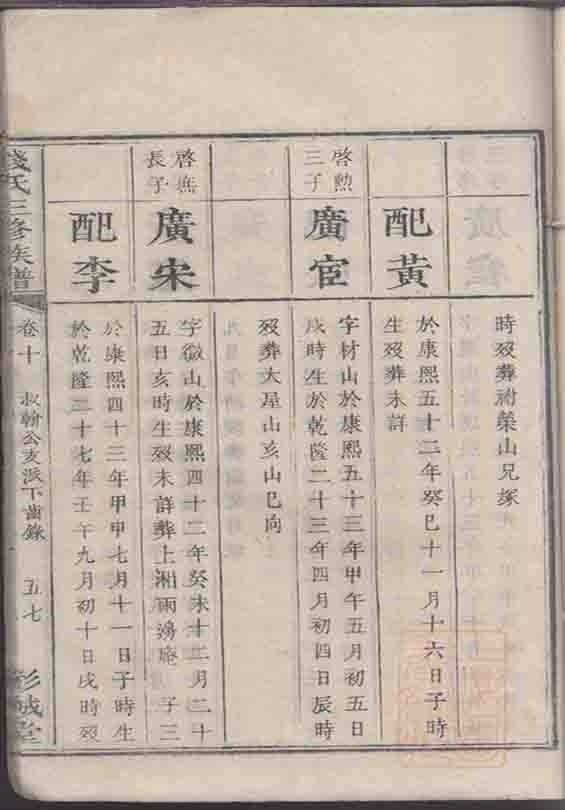 時歿葬祔榮山兄塚
配黃
於康熙五十二年癸巳十一月十六日子時
生歿葬未詳
啓勲
三子
廣宦
字材山於康熙五十三年甲午五月初五日
戌時生於乾隆二十三年四月初四日辰時
歿葬大星山亥山巳向
啓
長子
廣宋
字徵山於康熙四十二年癸未十二月二十
五日亥時生歿未詳葬上湘雨庵 子三
配李
於康熙四十三年甲申七月十一日子時生
於乾隆二十七年壬午九月初十日戌時歿
錢氏三修族譜
卷十
叔翰公支派下齒錄
五七
彭城堂